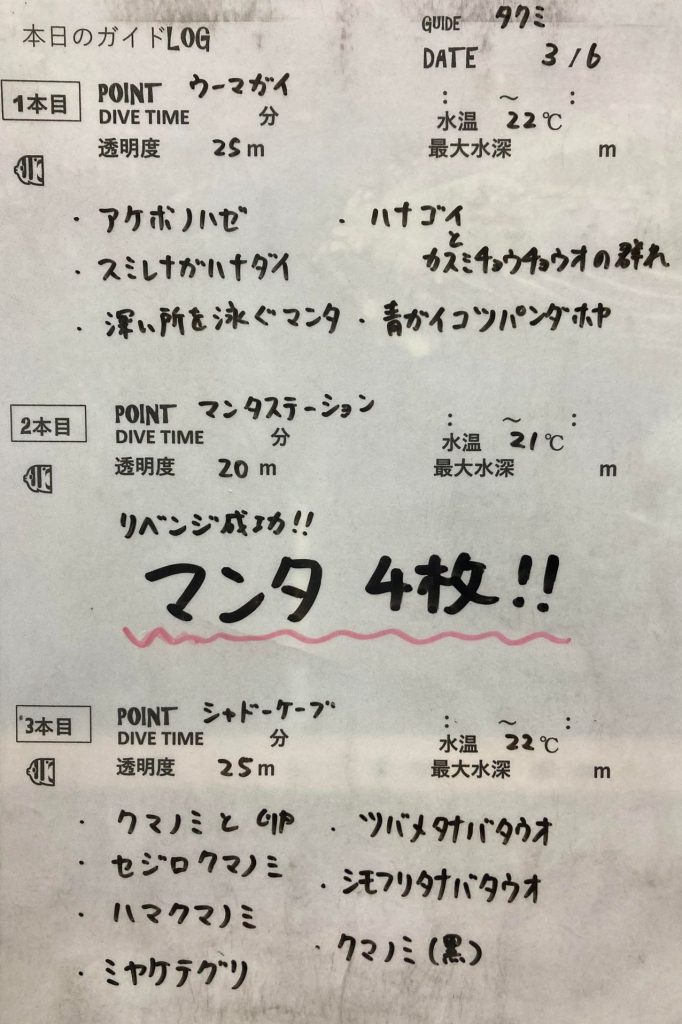 本日のガイドLOG
GUIDE タクミ
DATE 3/6
1本目 POINT ウーマガイ
: ～ :
DIVE TIME 分 水温 22℃
透明度 25m 最大水深 m
・アケボノハゼ ・ハナゴイ
と
・スミレナガハナダイ カスミチョウチョウオの群れ
・深い所を泳ぐマンタ ・青ガイコツパンダホヤ
2本目 POINT マンタステーション
: ～ :
DIVE TIME 分 水温 21℃
透明度 20m 最大水深 m
リベンジ成功!!
マンタ 4枚!!
3本目 POINT シャドーケーブ
: ～ :
DIVE TIME 分 水温 22℃
透明度 25m 最大水深 m
・クマノミと卵 ・ツバメタナバタウオ
・セジロクマノミ ・シモフリタナバタウオ
・ハマクマノミ ・クマノミ(黒)
・ミヤケテグリ